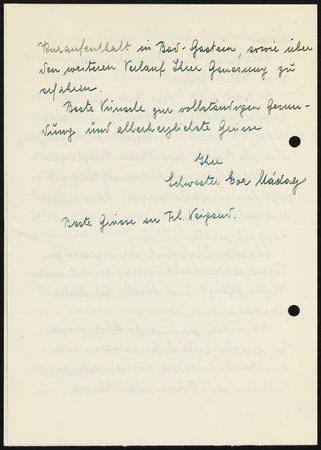 Kuraufenthalt in Bad-Gastein, sowie über
den weiteren Verlauf Ihrer Genesung zu
erfahren.
Beste Wünsche zur vollständigen Gesun-
dung und allerherzlichste Grüsse
Ihre
Schwester Eva
Beste Grüsse an Frl. Weigand.